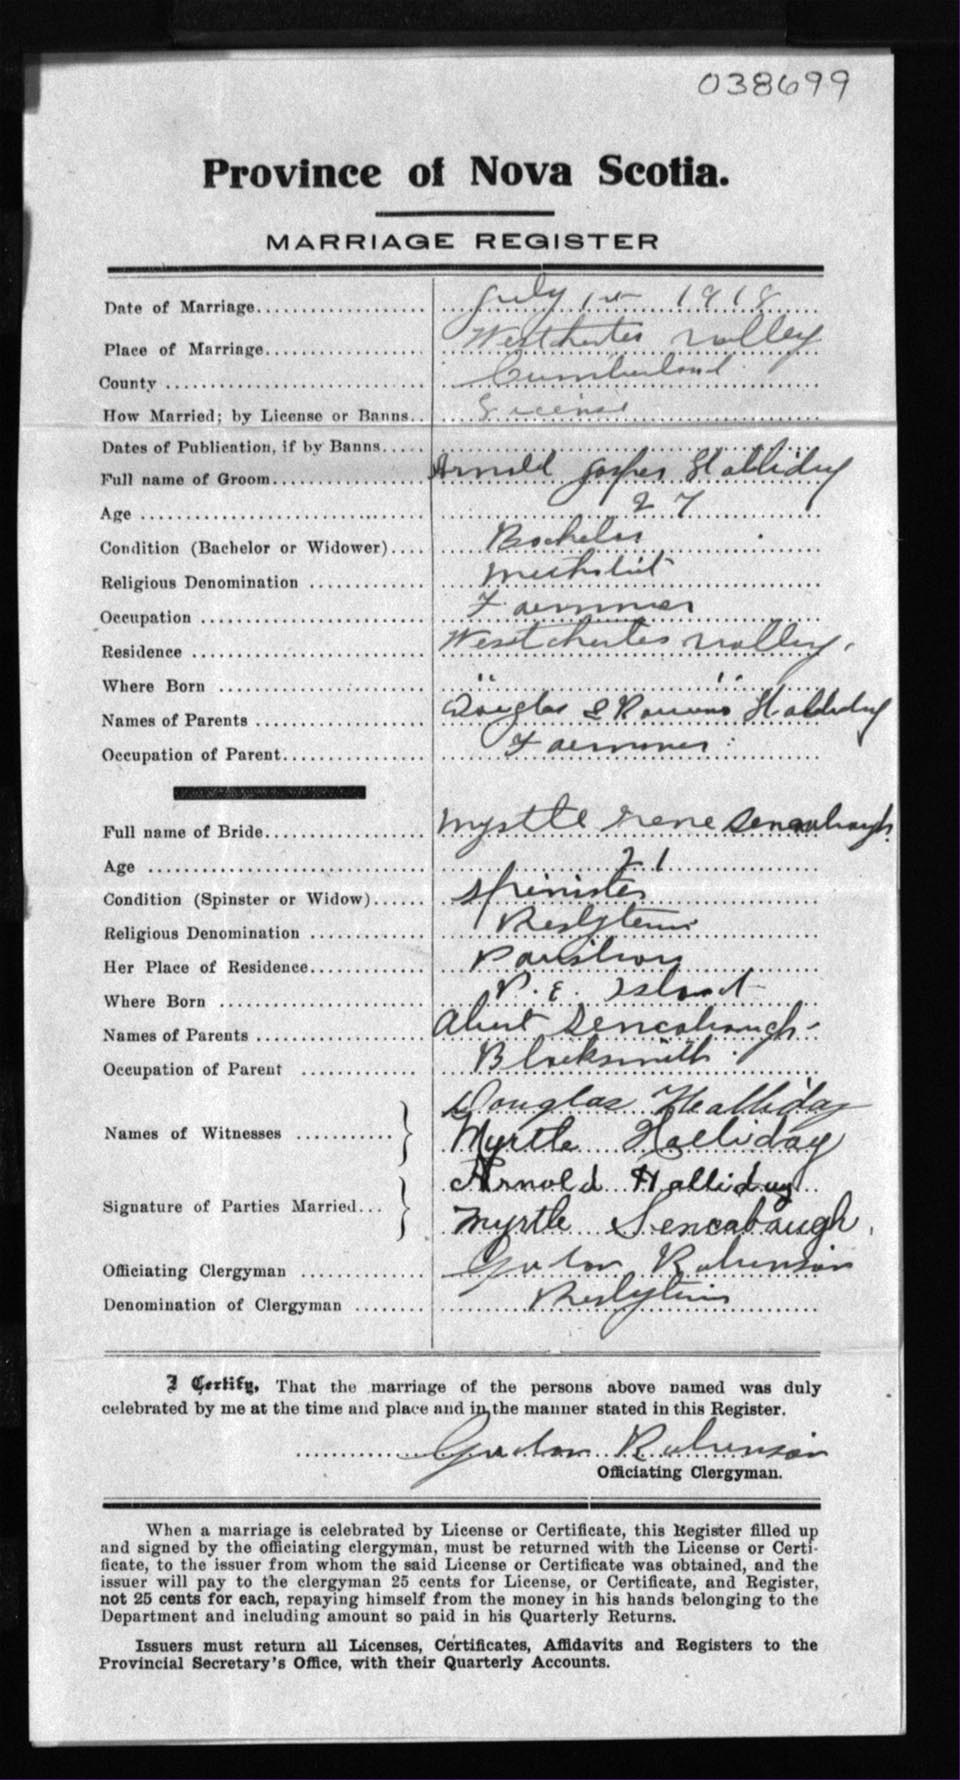 038699
Province of Nova Scotia.
MARRIAGE REGISTER
Date of Marriage.................... July 1st 1918
Place of Marriage.................. Westchester valley
County ............................ Cumberland
How Married; by License or Banns.. License
Dates of Publication, if by Banns.....
Full name of Groom................. Arnold Halliday
Age ............................... 27
Condition (Bachelor or Widower).... Bachelor
Religious Denomination ............
Occupation ........................ Faermer
Residence ......................... Westchester valley.
Where Born ...................... " "
Names of Parents .................. Douglas & Halliday
Occupation of Parent................ Faermer
Full name of Bride................. Myrtle Irene Sencabaugh
Age ............................... 21
Condition (Spinster or Widow)...... Spinister
Religious Denomination ............
Her Place of Residence.............
Where Born ........................ P. E. Island
Names of Parents .................. Sencabaugh
Occupation of Parent .............. Blacksmith
Names of Witnesses ........... } Douglas Halliday
Myrtle Halliday
Signature of Parties Married... } Arnold Halliday
Myrtle Sencabaugh
Officiating Clergyman ............. Robinson
Denomination of Clergyman ........
I Certify, That the marriage of the persons above named was duly
celebrated by me at the time and place and in the manner stated in this Register.
Robinson
Officiating Clergyman.
When a marriage is celebrated by License or Certificate, this Register filled up
and signed by the officiating clergyman, must be returned with the License or Certi-
ficate, to the issuer from whom the said License or Certificate was obtained, and the
issuer will pay to the clergyman 25 cents for License, or Certificate, and Register,
not 25 cents for each, repaying himself from the money in his hands belonging to the
Department and including amount so paid in his Quarterly Returns.
Issuers must return all Licenses, Certificates, Affidavits and Registers to the
Provincial Secretary's Office, with their Quarterly Accounts.